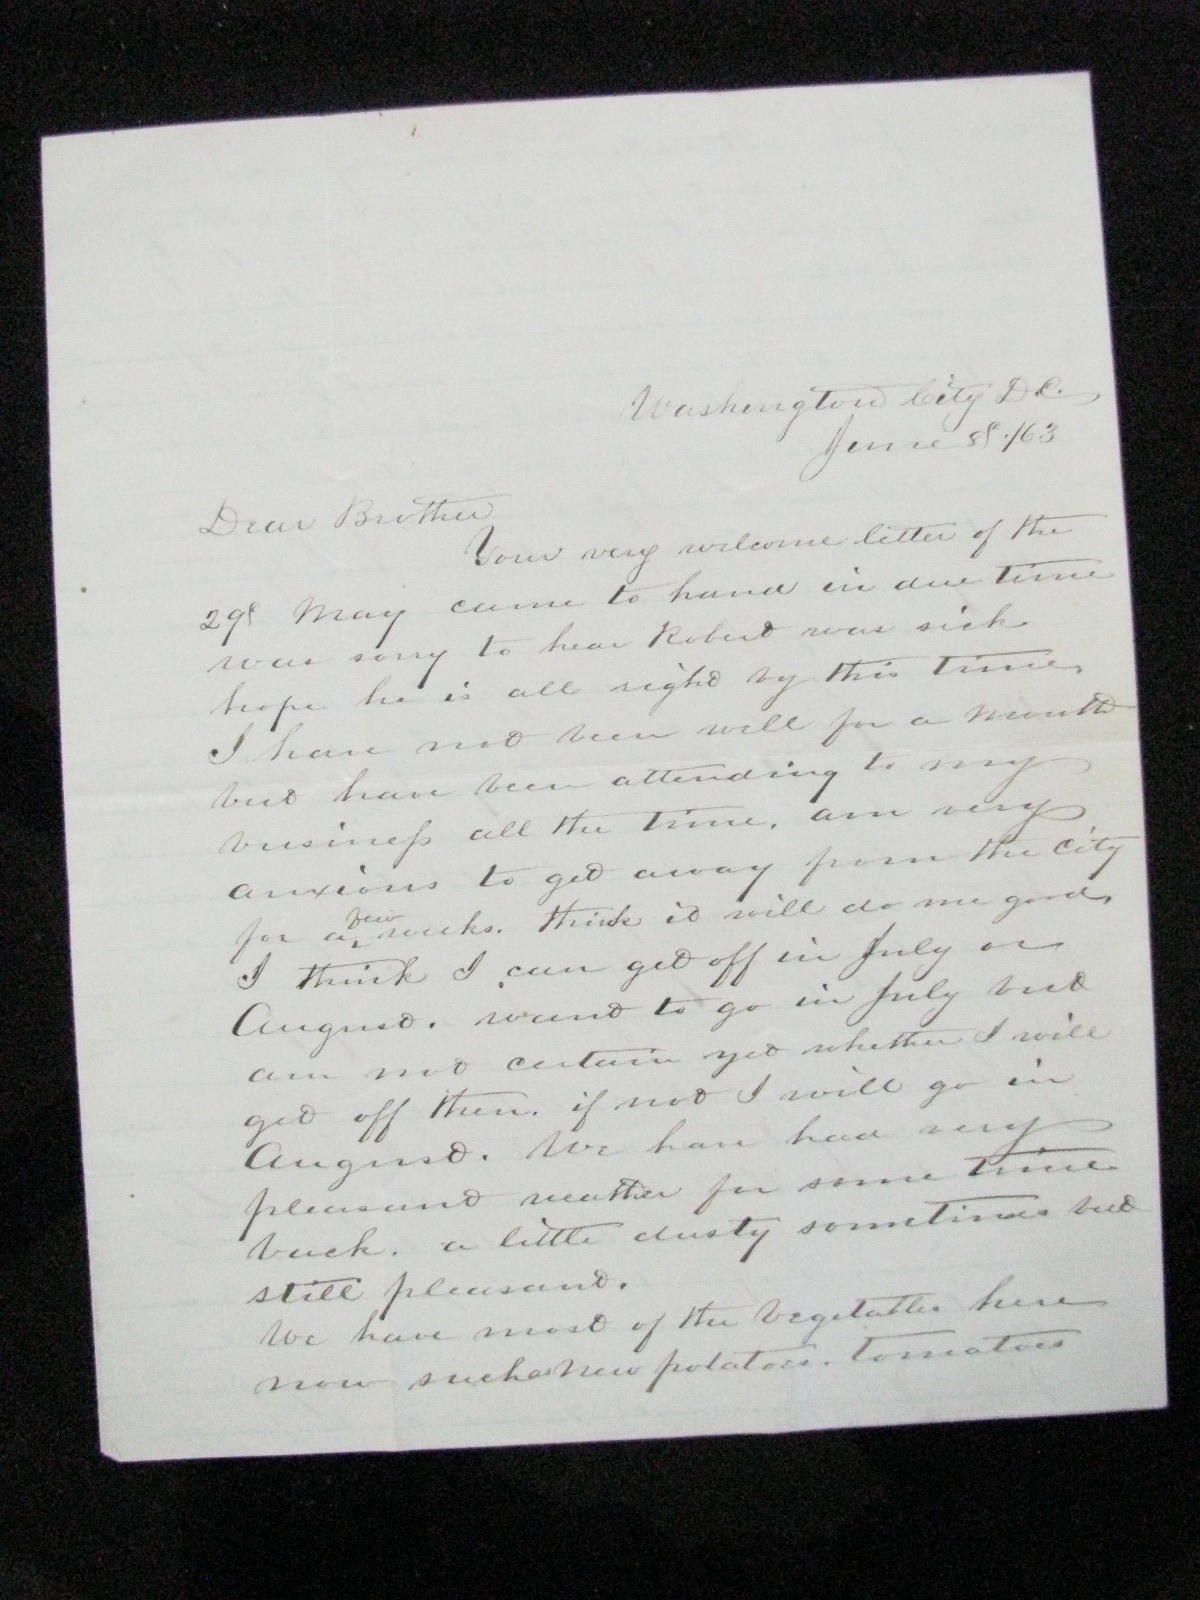 Washington City D.C.
June 8th /63
Dear Brother
Your very welcome letter of the
29th May came to hand in due time
was sorry to hear Robert was sick
hope he is all right by this time,
I have not been well for a month
but have been attending to my
business all the time. am very
anxious to get away from the City
for a few weeks. think it will do me good,
I think I can get off in July or
August. want to go in July but
am not certain yet whether I will
get off then. if not I will go in
August. We have had very
pleasant weather for some time
back. a little dusty sometimes but
still pleasant.
We have most of the Vegetables here
now such as New potatoes. tomatoes